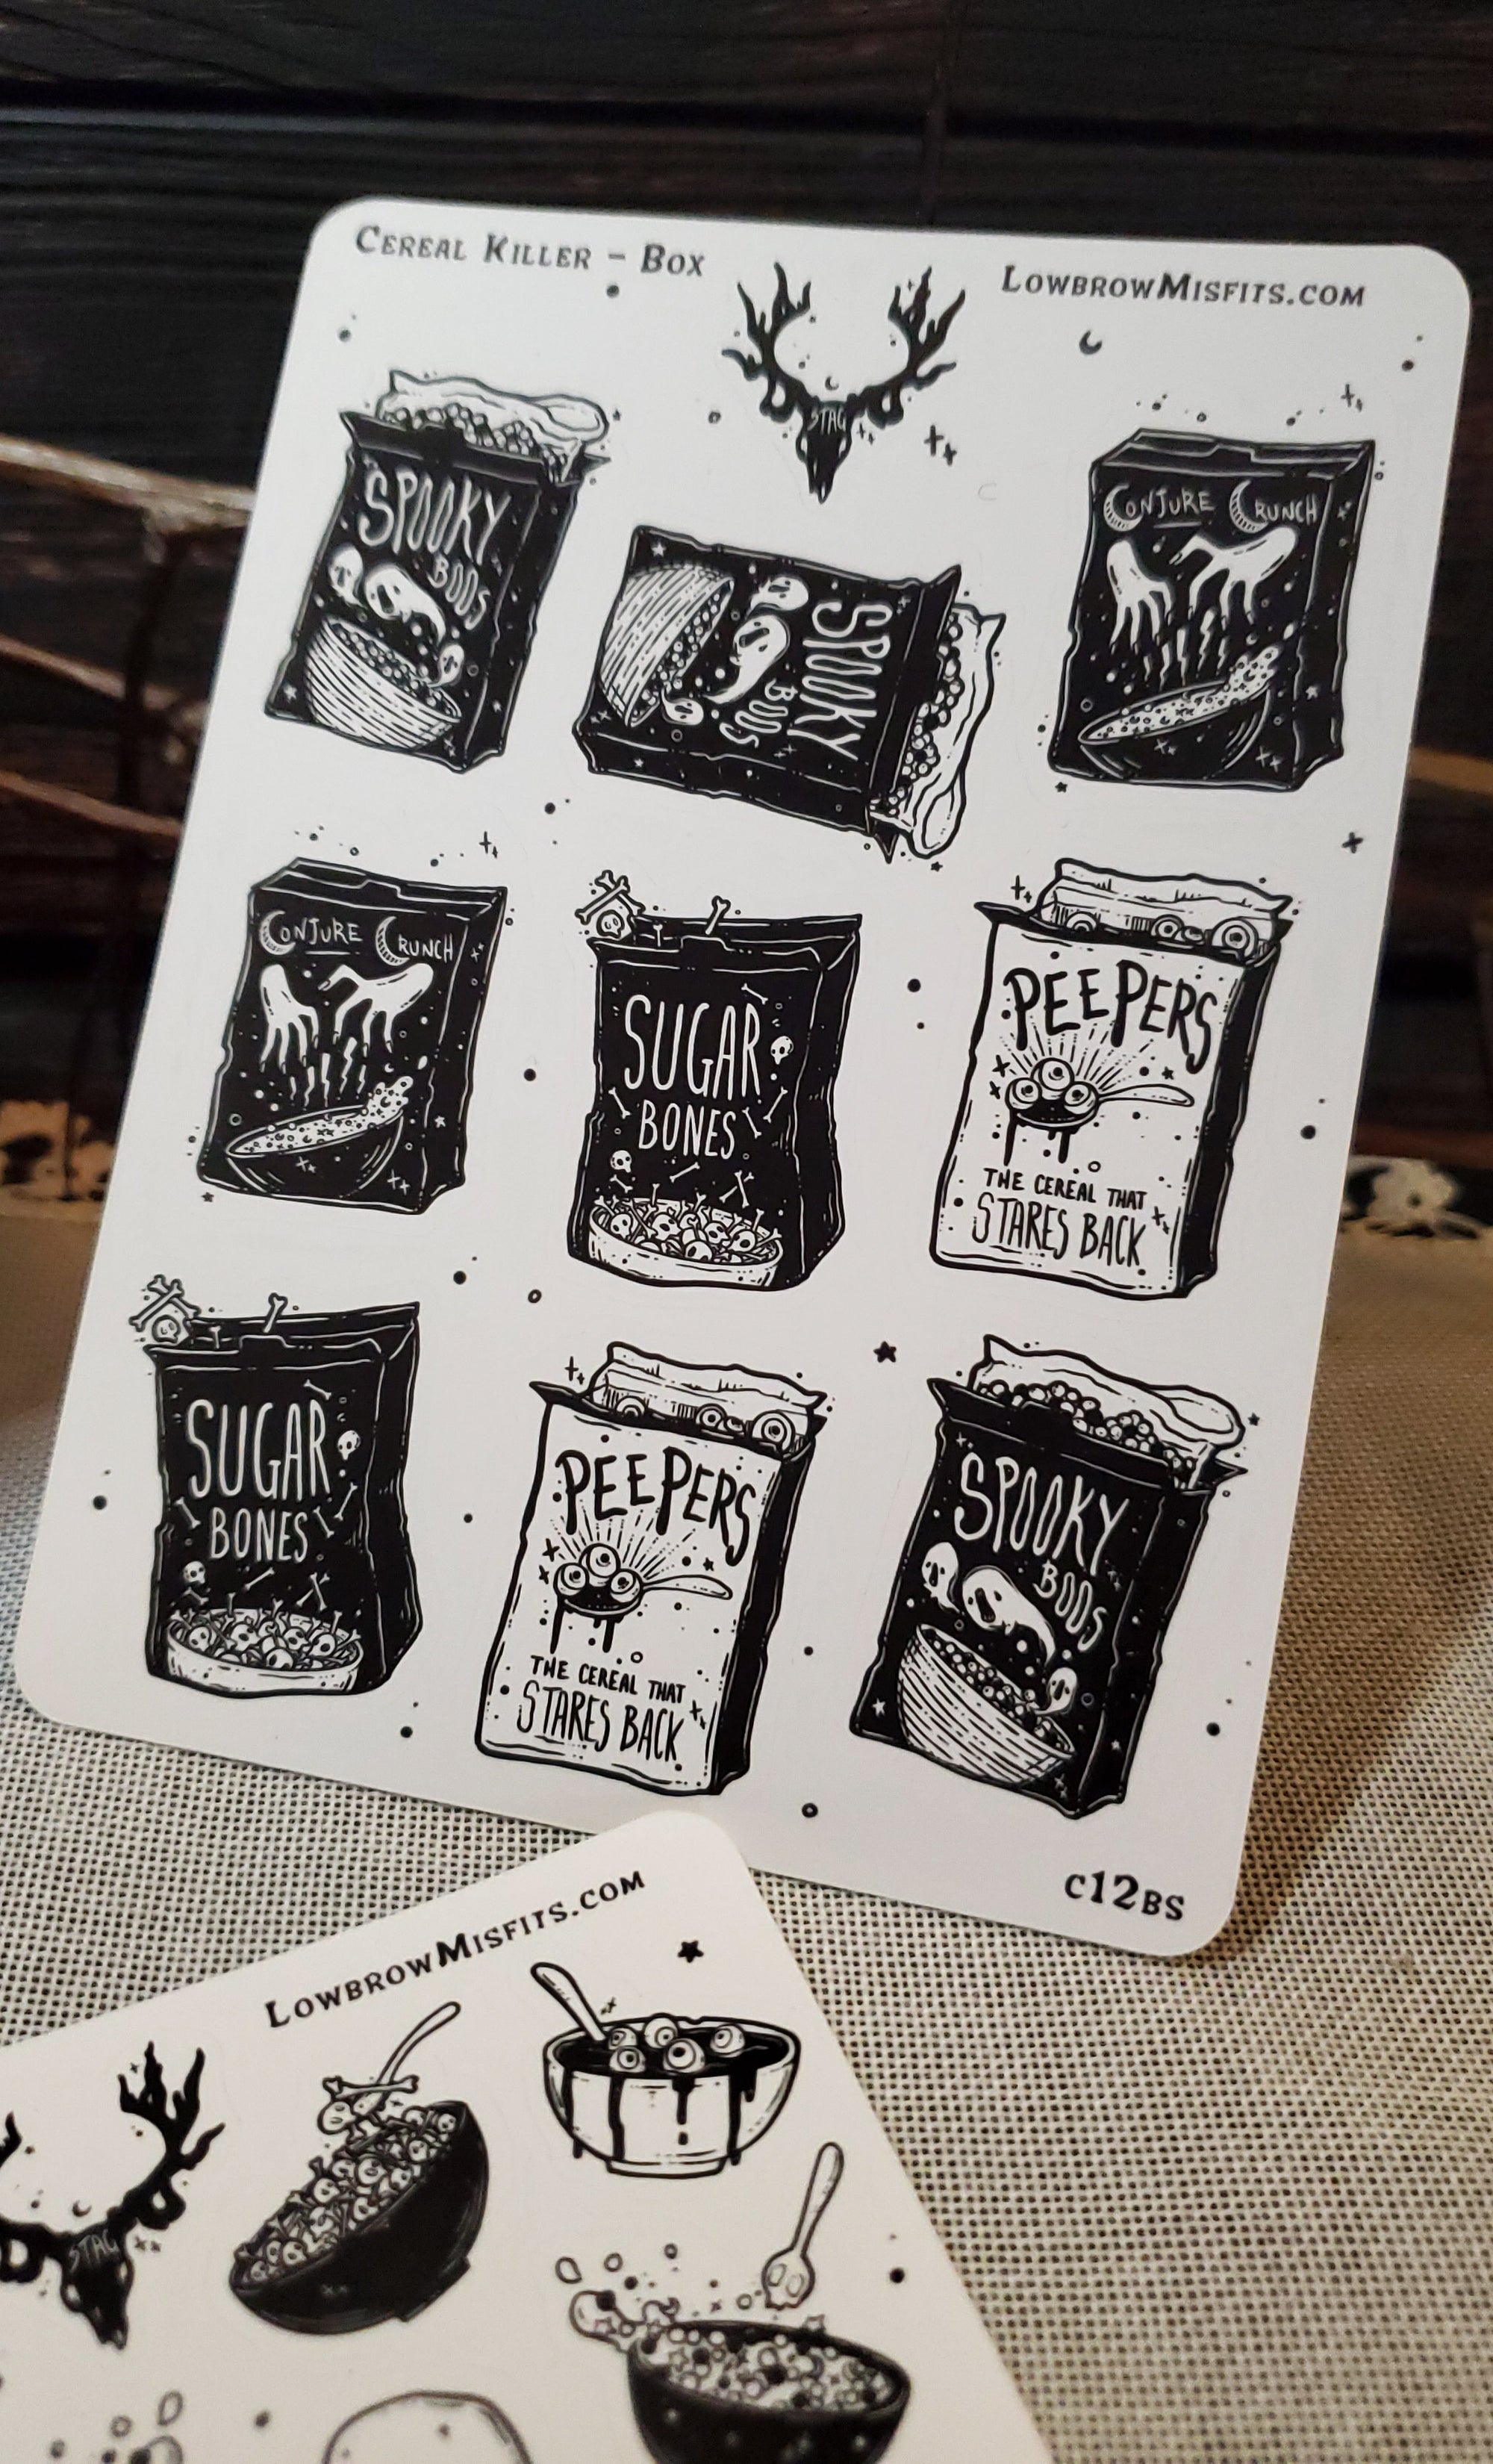 Cereal Killer - Box
LowbrowMisfits.com
STAG
SPOOKY
BOOS
SPOOKY
BOOS
CONJURE CRUNCH
CONJURE CRUNCH
SUGAR
BONES
PEEPERS
THE CEREAL THAT
STARES BACK
SUGAR
BONES
PEEPERS
THE CEREAL THAT
STARES BACK
SPOOKY
BOOS
C12BS
LowbrowMisfits.com
STAG